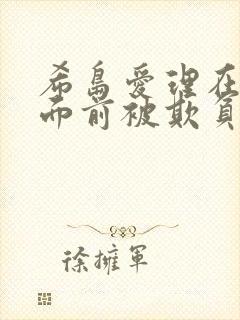 希島愛理在
而前被欺負
徐擁軍